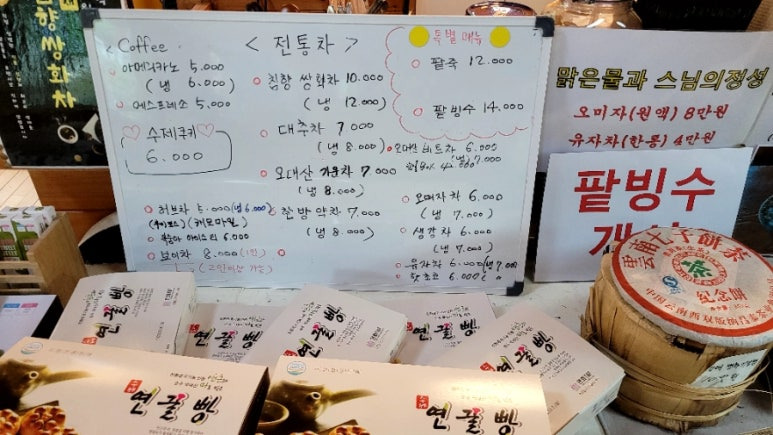 <Coffee>
아메리카노 5.000
(냉 6.000)
에스프레소 5.000
수제쿠키
6.000
허브차 5.000 (냉 6.000)
(캐모마일)
복숭아 아이스티 6.000
보이차 8.000 (1인)
(2인이상 가능)
<전통차>
침향 쌍화차 10.000
(냉 12.000)
대추차 7.000
(냉 8.000)
오대산 마가목차 7.000
(냉 8.000)
한방약차 7.000
(냉 8.000)
특별메뉴
팥죽 12.000
팥빙수 14.000
오대산 비트차 6.000
(냉) 7.000
오미자차 6.000
(냉 7.000)
생강차 6.000
(냉 7.000)
유자차 6.000 (냉 7.00
핫초코 6.000
맑은물과 스님의정성
오미자(원액) 8만원
유자차(한통) 4만원
팥빙수
향쌍화차
云南七子饼茶
纪念饼
연꿀빵
연꿀빵
연꿀빵
연꿀빵
연꿀빵
연꿀빵
연꿀빵